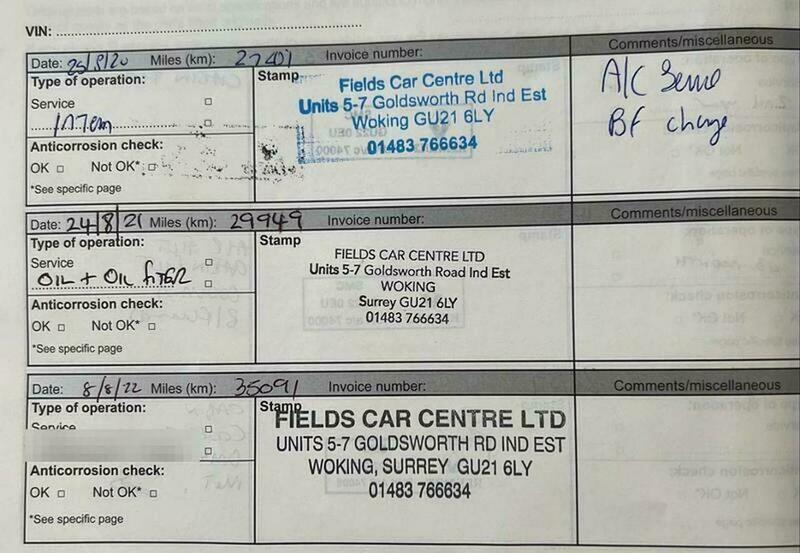 VIN:
Date: 25/8/20 Miles (km): 27401 Invoice number:
Comments/miscellaneous
Type of operation:
Stamp
Service
Fields Car Centre Ltd
Units 5-7 Goldsworth Rd Ind Est
Woking GU21 6LY
01483 766634
A/C
BF change
Anticorrosion check:
OK Not OK*
*See specific page
Date: 24/8/21 Miles (km): 29949 Invoice number:
Comments/miscellaneous
Type of operation:
Stamp
Service
OIL + OIL FILTER
FIELDS CAR CENTRE LTD
Units 5-7 Goldsworth Road Ind Est
WOKING
Surrey GU21 6LY
01483 766634
Anticorrosion check:
OK Not OK*
*See specific page
Date: 8/8/22 Miles (km): 35091 Invoice number:
Comments/miscellaneous
Type of operation:
Stamp
Service
FIELDS CAR CENTRE LTD
UNITS 5-7 GOLDSWORTH RD IND EST
WOKING, SURREY GU21 6LY
01483 766634
Anticorrosion check:
OK Not OK*
*See specific page